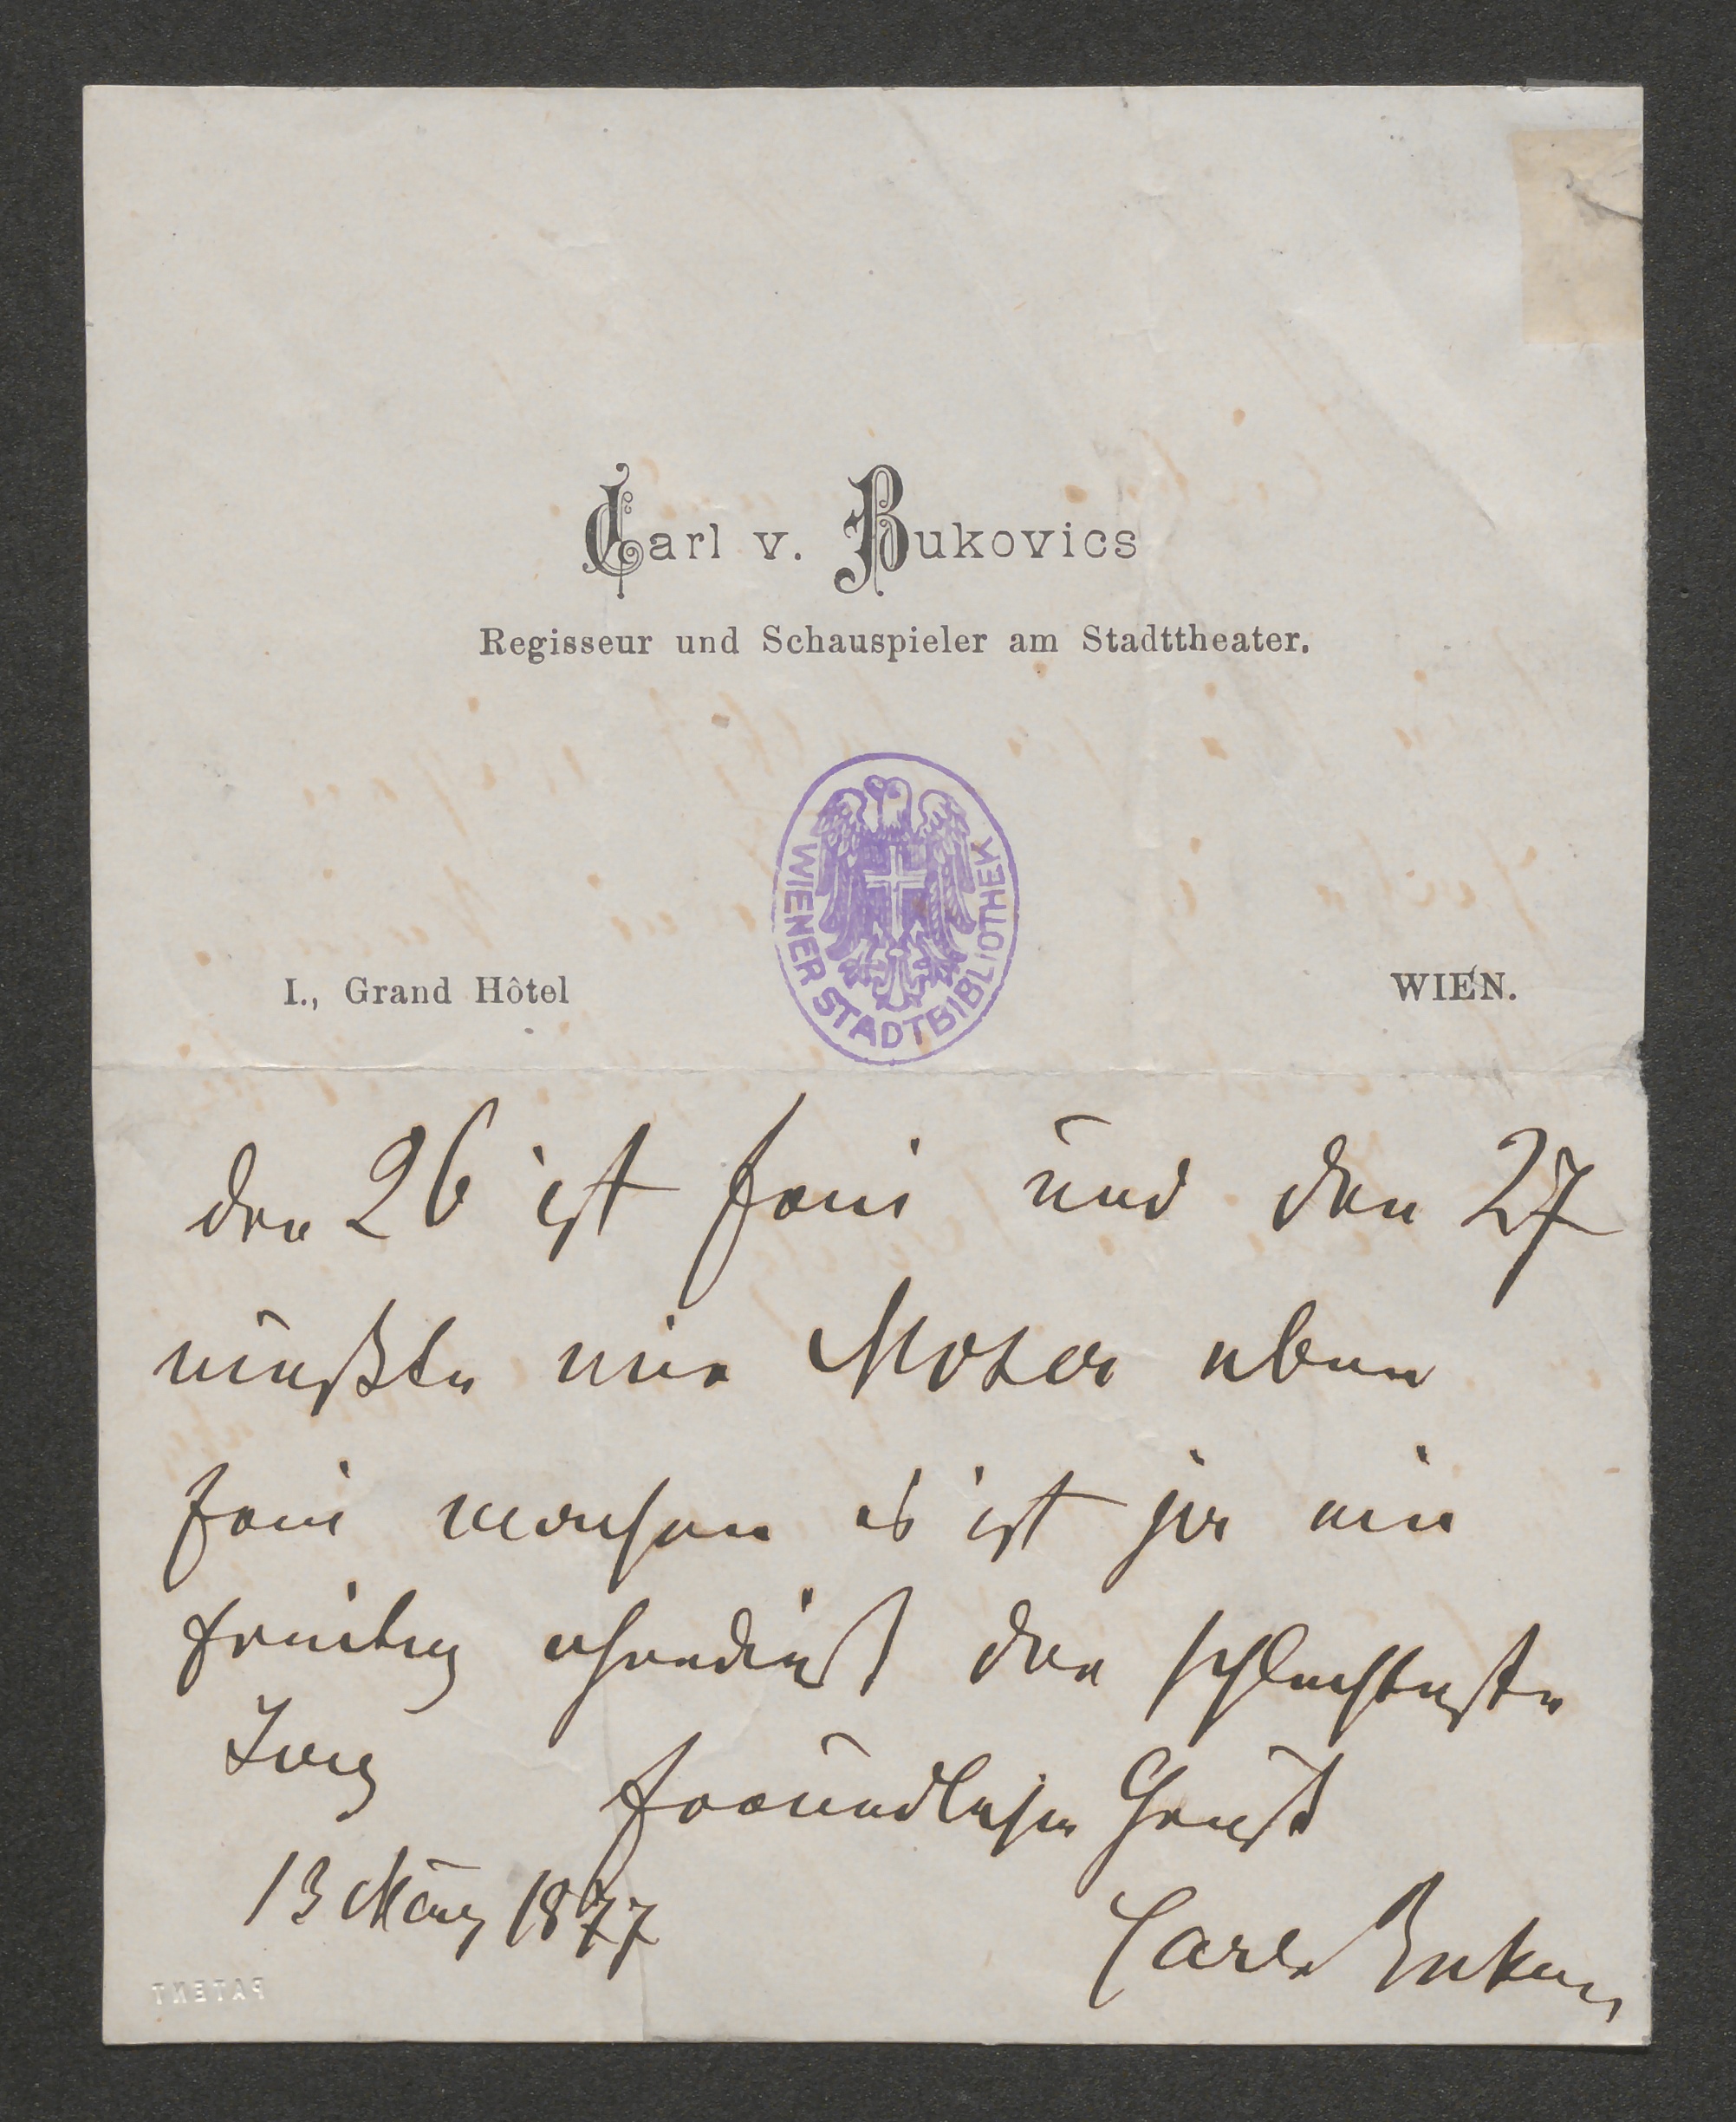 Carl v. Bukovics
Regisseur und Schauspieler am Stadttheater.
WIENER STADTBIBLIOTHEK
I., Grand Hôtel WIEN.
der 26 ist frei und den 27
müßte mir Moser eben
frei machen es ist ja ein
Freitag ohnedieß der schlechteste
Tag freundlichen Gruß
13 März 1877
Carl v Bukovics
PATENT